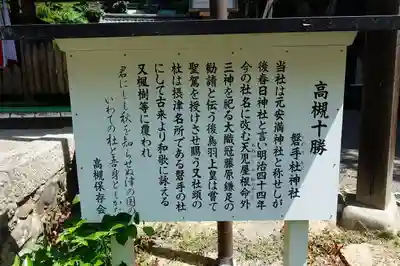 高槻十勝
磐手社神社
当社は元安満神社と称せしが
後春日神社と言い明治四十四年
今の社名に改む天児屋根命外
三神を祀る大織冠藤原鎌足の
勧請と伝う後鳥羽上皇は嘗て
聖駕を枉げさせ賜う又社頭の
社は摂津名所である磐手の社
にして古来より和歌に詠える
又楓樹等に覆われ
君にしも秋を知らせぬ津の国の
いわての社を吾身ともがな
高槻保存会